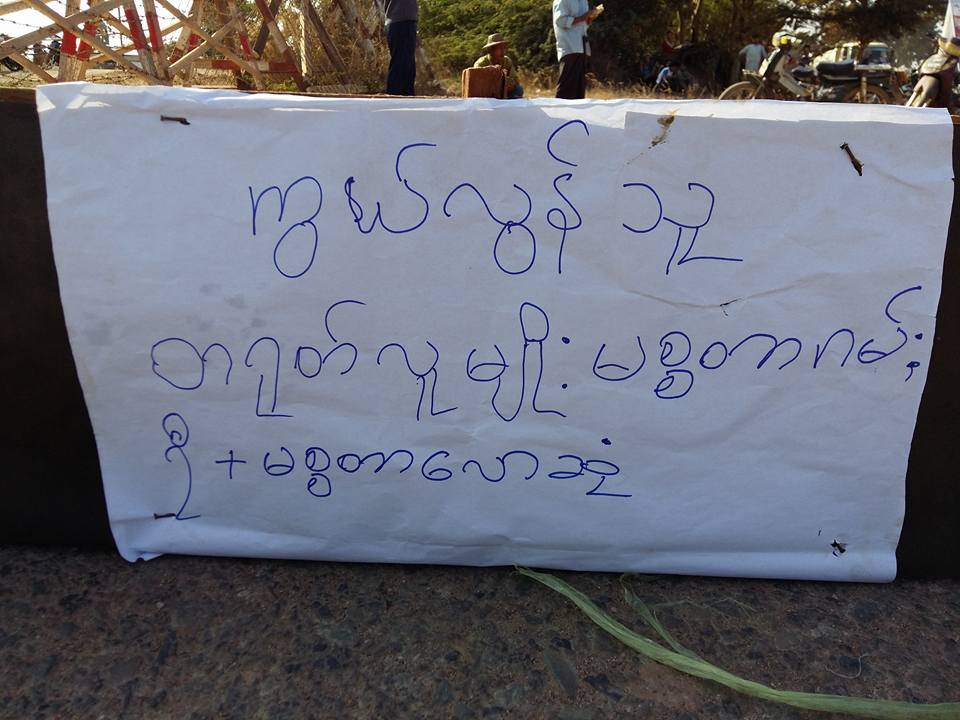 ကွယ်လွန်သူ
တရုတ်လူမျိုး မစ္စတာဂမ်း
ဦ + မစ္စတာလောဆုံ